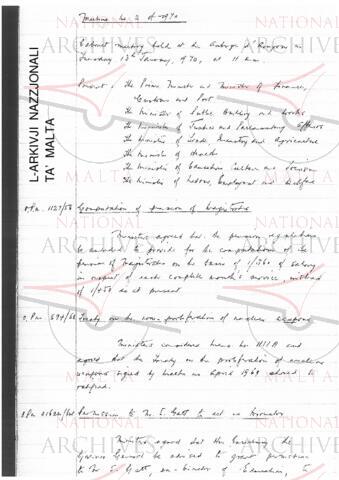 Meeting No. 2 of 1970
Cabinet meeting held at the Auberge d'Aragon on
Tuesday 13th January, 1970, at 11 a.m.
Present : The Prime Minister and Minister of Finance,
Customs and Port
The Minister of Public Building and Works
The Minister of Justice and Parliamentary Affairs
The Minister of Trade, Industry and Agriculture
The Minister of Health
The Minister of Education, Culture and Tourism
The Minister of Labour, Employment and Welfare
Computation of pension of Magistrates
Ministers agreed that the pension regulations
be amended to provide for the computation of the
pension of Magistrates on the basis of 1/360 of salary
in respect of each complete month's service, instead
of as at present.
Treaty on the non-proliferation of nuclear weapons
Ministers considered memo No.
and
agreed that the treaty on the proliferation of nuclear
weapons signed by Malta in April 1969 should be
ratified.
Permission to Mr. E. Gatt to act as
Ministers agreed that the Secretary the
Governor General be advised to grant permission
to Mr E. Gatt, ex-Director of Education, to
L-ARKIVJI NAZZJONALI
TA' MALTA
NATIONAL
ARCHIVES
MALTA